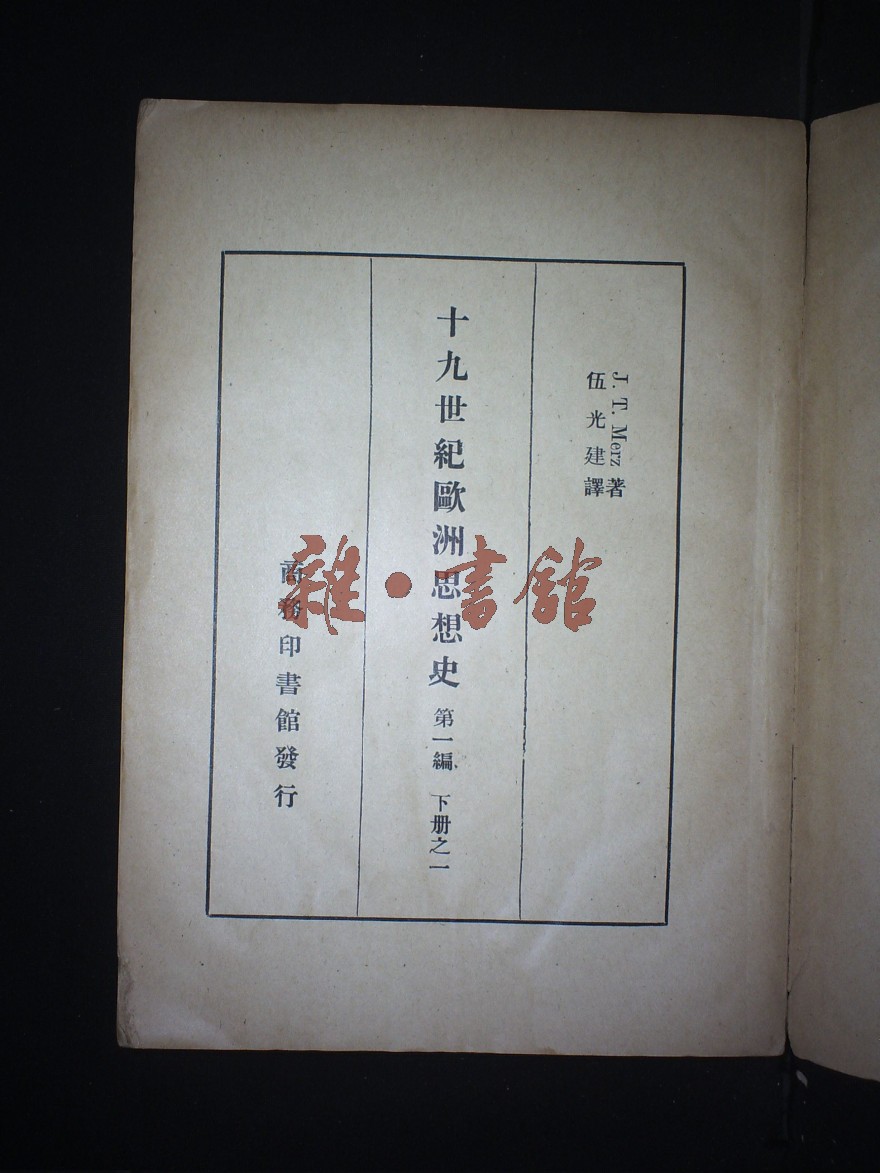 J. T. Merz 著
伍光建譯
十九世紀歐洲思想史 第一編 下册之一
商務印書館發行
雜·書館